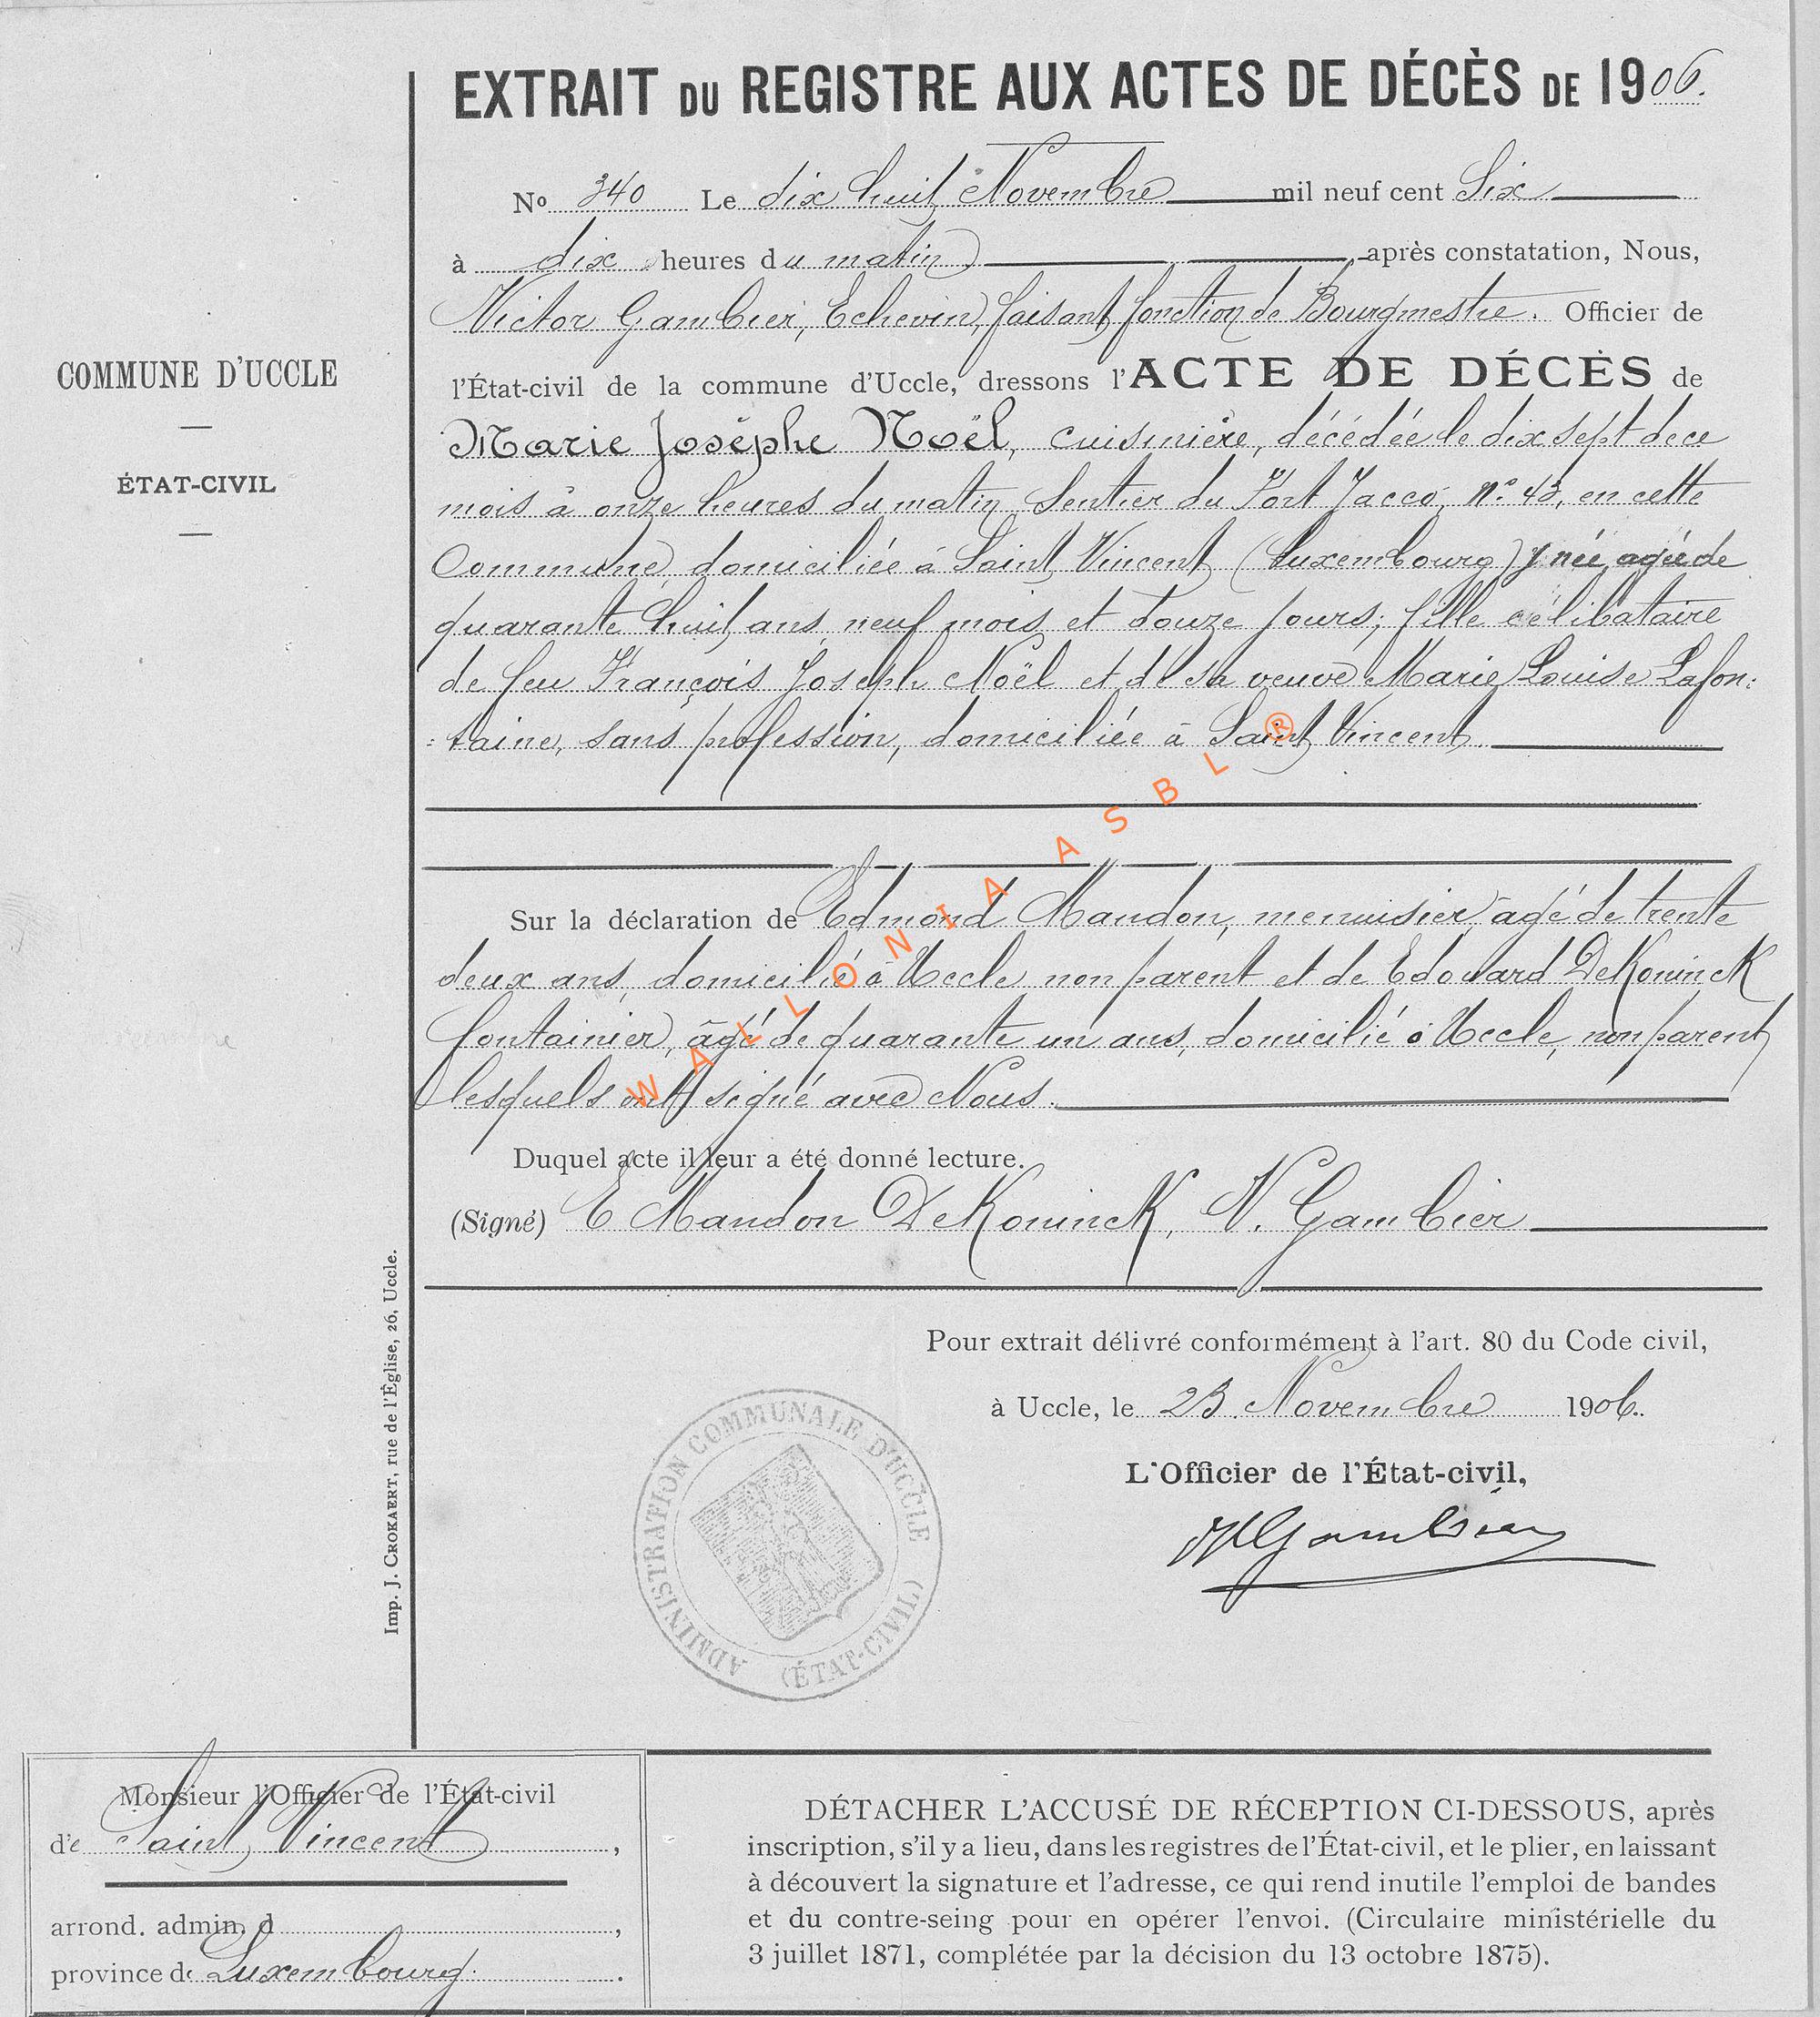 EXTRAIT DU REGISTRE AUX ACTES DE DÉCÈS DE 1906.
No 340 Le dix huit Novembre mil neuf cent Six
à dix heures du matin, après constatation, Nous,
Victor Gambier, Echevin, faisant fonction de Bourgmestre. Officier de
l'État-civil de la commune d'Uccle, dressons l'ACTE DE DÉCÈS de
Marie Josèphe Noël, cuisinière, décédée le dix sept de ce
mois à onze heures du matin Sentier du Fort Jacco, no. 43, en cette
Commune, domiciliée à Saint Vincent (Luxembourg) y née, agée de
quarante huit ans, neuf mois et douze jours; fille célibataire
de feu François Joseph Noël et de sa veuve Marie Louise Lafon:
:taine, sans profession, domiciliée à Saint Vincent.
Sur la déclaration de Edmond Mandon, menuisier, âgé de trente
deux ans, domicilié à Uccle non parent et de Edouard DeKoninck
fontainier, âgé de quarante un ans, domicilié à Uccle, non parent
lesquels ont signé avec Nous.
Duquel acte il leur a été donné lecture.
(Signé) E Mandon DeKoninck, V. Gambier
Pour extrait délivré conformément à l'art. 80 du Code civil,
à Uccle, le 23 Novembre 1906.
L'Officier de l'État-civil,
VGambier
ADMINISTRATION COMMUNALE D'UCCLE
(ÉTAT-CIVIL)
COMMUNE D'UCCLE
ÉTAT-CIVIL
Imp. J. CROKAERT, rue de l'Église, 26, Uccle.
WALLONIA ASBL ®
Monsieur l'Officier de l'État-civil
de Saint Vincent,
arrond. admin. d,
province de Luxembourg.
DÉTACHER L'ACCUSÉ DE RÉCEPTION CI-DESSOUS, après
inscription, s'il y a lieu, dans les registres de l'État-civil, et le plier, en laissant
à découvert la signature et l'adresse, ce qui rend inutile l'emploi de bandes
et du contre-seing pour en opérer l'envoi. (Circulaire ministérielle du
3 juillet 1871, complétée par la décision du 13 octobre 1875).